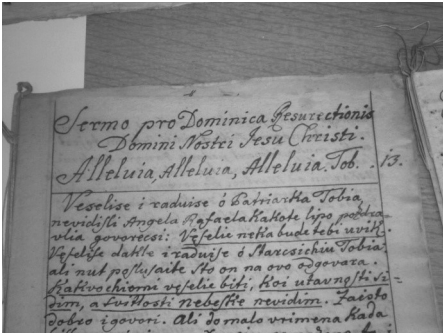 Sermo pro Dominica Resurectionis
Domini Nostri Jesu Christi.
Alleluia, Alleluia, Alleluia. Tob. 13.
Veselise i raduise ó Patriarka Tobia
nevidisli Angela Rafaela kakote lipo pozdra-
vlia govorecsi: Veselie neka bude tebi uvik.
Veselise dakle i raduise ó Starcsichiu Tobia
ali nut poslusaite sto on na ovo odgovara.
Kakvochiemi veselie biti, koi utavnosti si-
dim, a svitlosti nebeske nevidim. Zaisto
dobro igovori. Ali do malo vrimena kada